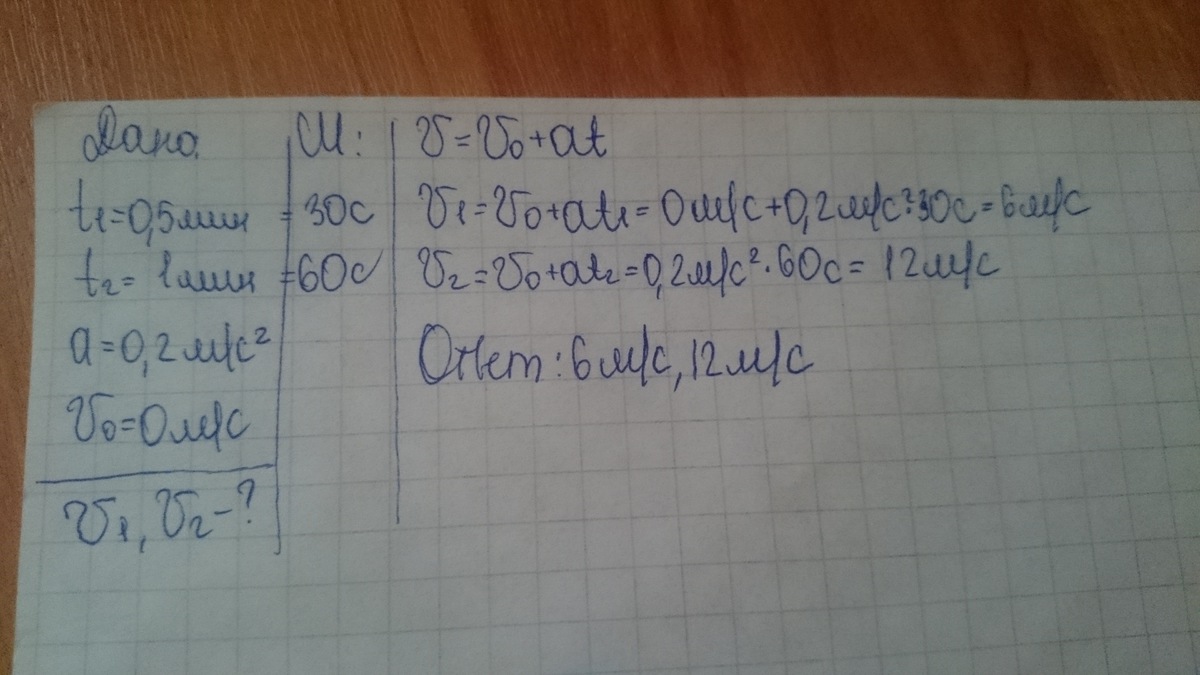 Дано:
t₁=0,5мин
t₂=1мин
a=0,2м/с²
υ₀=0м/с
υ₁, υ₂-?
СИ:
=30с
=60с
υ=υ₀+at
υ₁=υ₀+at₁=0м/с+0,2м/с²·30с=6м/с
υ₂=υ₀+at₂=0,2м/с²·60с=12м/с
Ответ: 6м/с, 12м/с